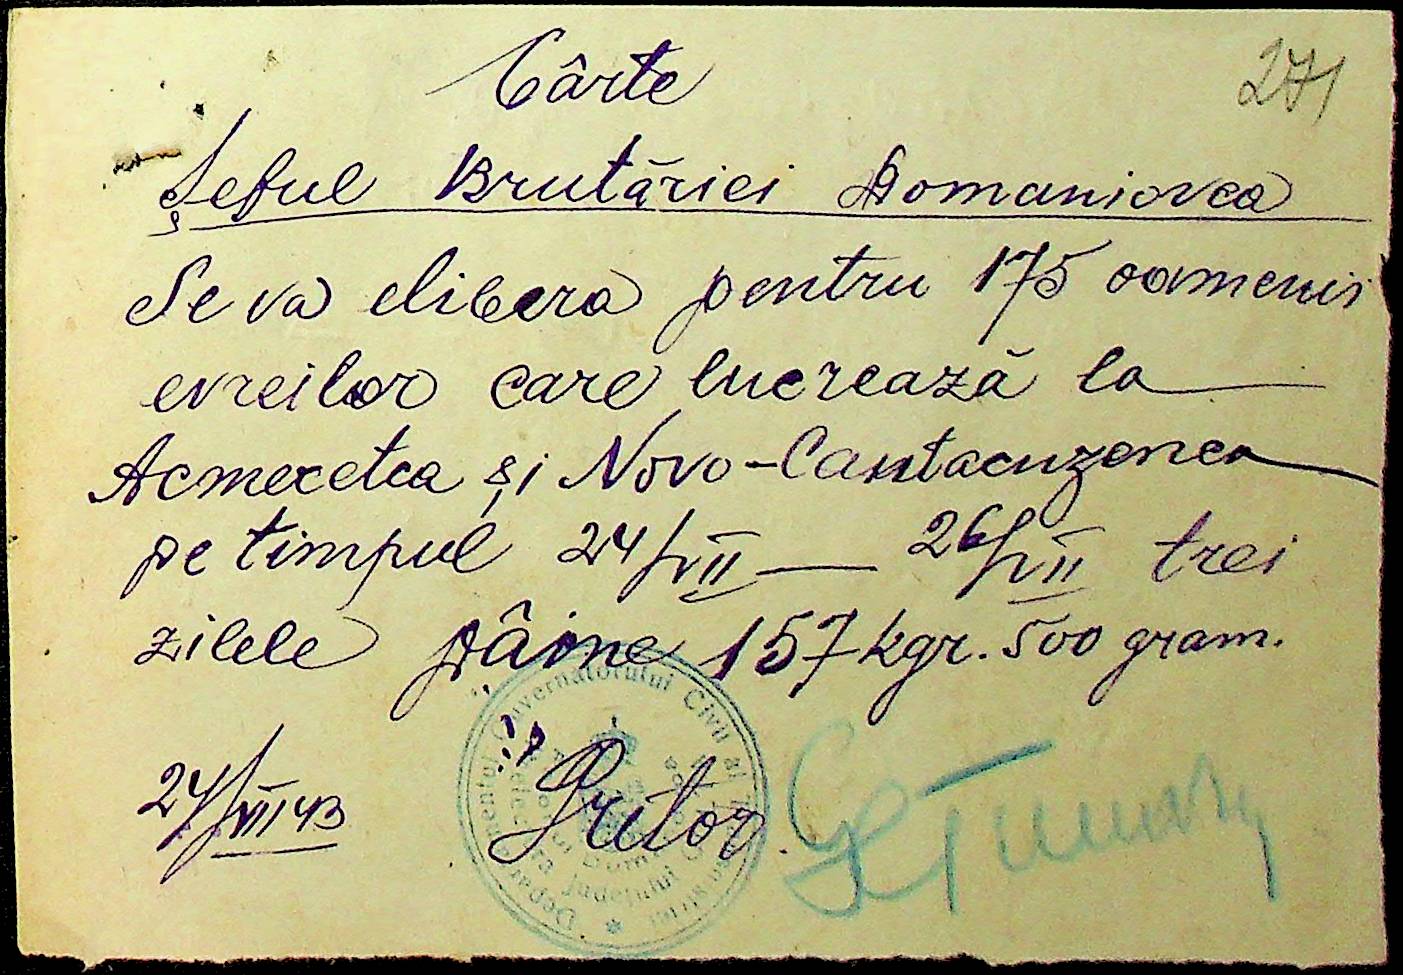 Cârte
271
Șeful Brutăriei Domaniovca
Se va elibera pentru 175 oamenii
evreilor care lucrează la
Acmecetca și Novo-Cantacuzenca
pe timpul 24/VII — 26/VII trei
zilele pâine 157 kgr. 500 gram.
24/VII 43
Pretor
Departamentul Guvernatorului Civil al
Județului